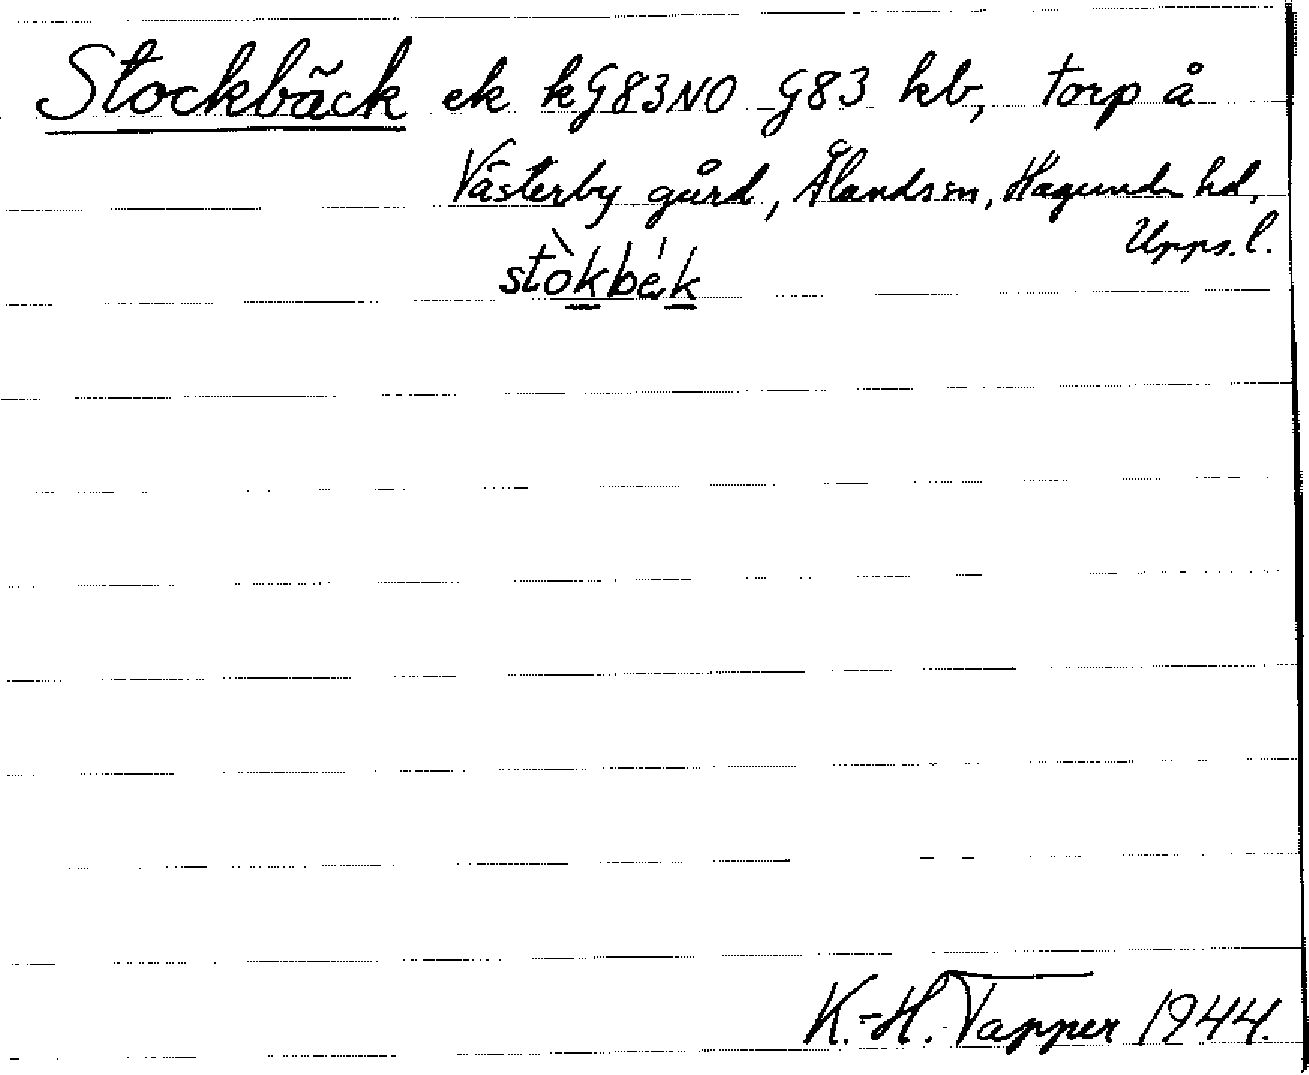 Stockbäck ek kG83NO G83 hb, torp å
Västerby gård, Ålands sn, Hagunda hd,
Upps. l.
stòkbék
K.-H. Tapper 1944.